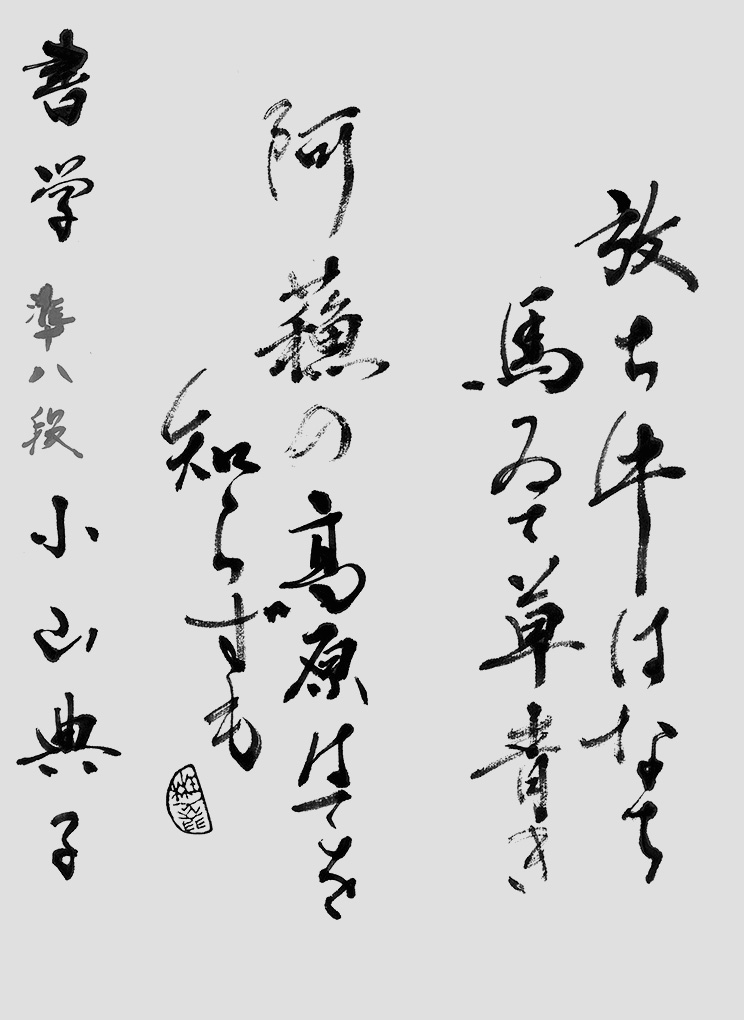 放ち牛はなち
馬ゐて草青き
阿蘓の高原はてを
知らずも
書学 準八段 小山典子